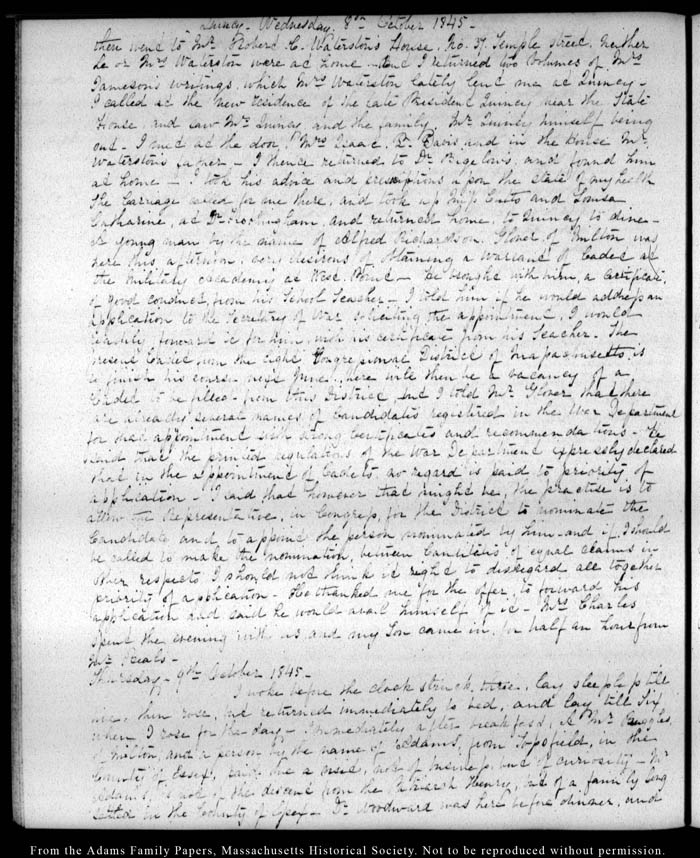 Quincy. Wednesday. 8th October 1845.
then went to Mr. Robert C. Waterston's House, No. 37. Temple street. Neither
he or Mrs Waterston were at home. And I returned two volumes of Mrs
Jameson's writings, which Mrs Waterston lately lent me at Quincy.
I called at the new residence of the late President Quincy near the State
House, and saw Mrs Quincy and the family, Mr. Quincy himself being
out. I met at the door, Mrs Isaac P. Davis, and in the House Mr.
Waterston's father. I thence returned to Dr. Bigelow's, and found him
at home. I took his advice and prescriptions upon the state of my health
The Carriage called for me there, and took up and Louisa
Catharine, at Dr. Frothingham, and returned home, to Quincy to dine.
A young man by the name of Alfred Richardson Glover, of Milton was
here this afternoon, very desirous of obtaining a warrant of Cadet at
the Military academy at West Point. He brought with him, a Certificate
of good conduct, from his School Teacher. I told him if he would address an
application to the Secretary of War soliciting the appointment, I would
readily forward it for him, with his certificate from his Teacher. The
present Cadet from the eight Congressional District of Massachusetts, is
to finish his course next June, there will then be a vacancy of a
Cadet to be filled from this District, but I told Mr. Glover that there
are already several names of Candidates registered in the War Department
for that appointment with strong Certificates and recommendations. He
said that the printed regulations of the War Department expressly declared
that in the appointment of Cadets, no regard is paid to priority of
application. I said that however that might be, the practise is to
allow the Representative, in Congress, for the District to nominate the
Candidate and to appoint the person nominated by him and if I should
be called to make the nomination, between Candidates of equal claims in
other respects I should not think it right to disregard all together
priority of application. He thanked me for the offer, to forward his
application and said he would avail himself of it. Mrs Charles
spent the evening with us and my Son came in, for half an hour from
Mr. Beale's.
Thursday. 9th October 1845.
I woke before the clock struck three, lay sleepless till
five, then rose, but returned immediately to bed, and lay till Six
when I rose for the day. Immediately after breakfast, A Mr Ruggles,
of Milton, and a person by the name of Adams, from Topsfield, in the
County of Essex, paid me a visit, not of business, but of curiosity. Mr
Adams, is not of the descent from the Henry, but of a family long
settled in the County of Essex. Dr. Woodward was here before dinner, and
From the Adams Family Papers, Massachusetts Historical Society. Not to be reproduced without permission.